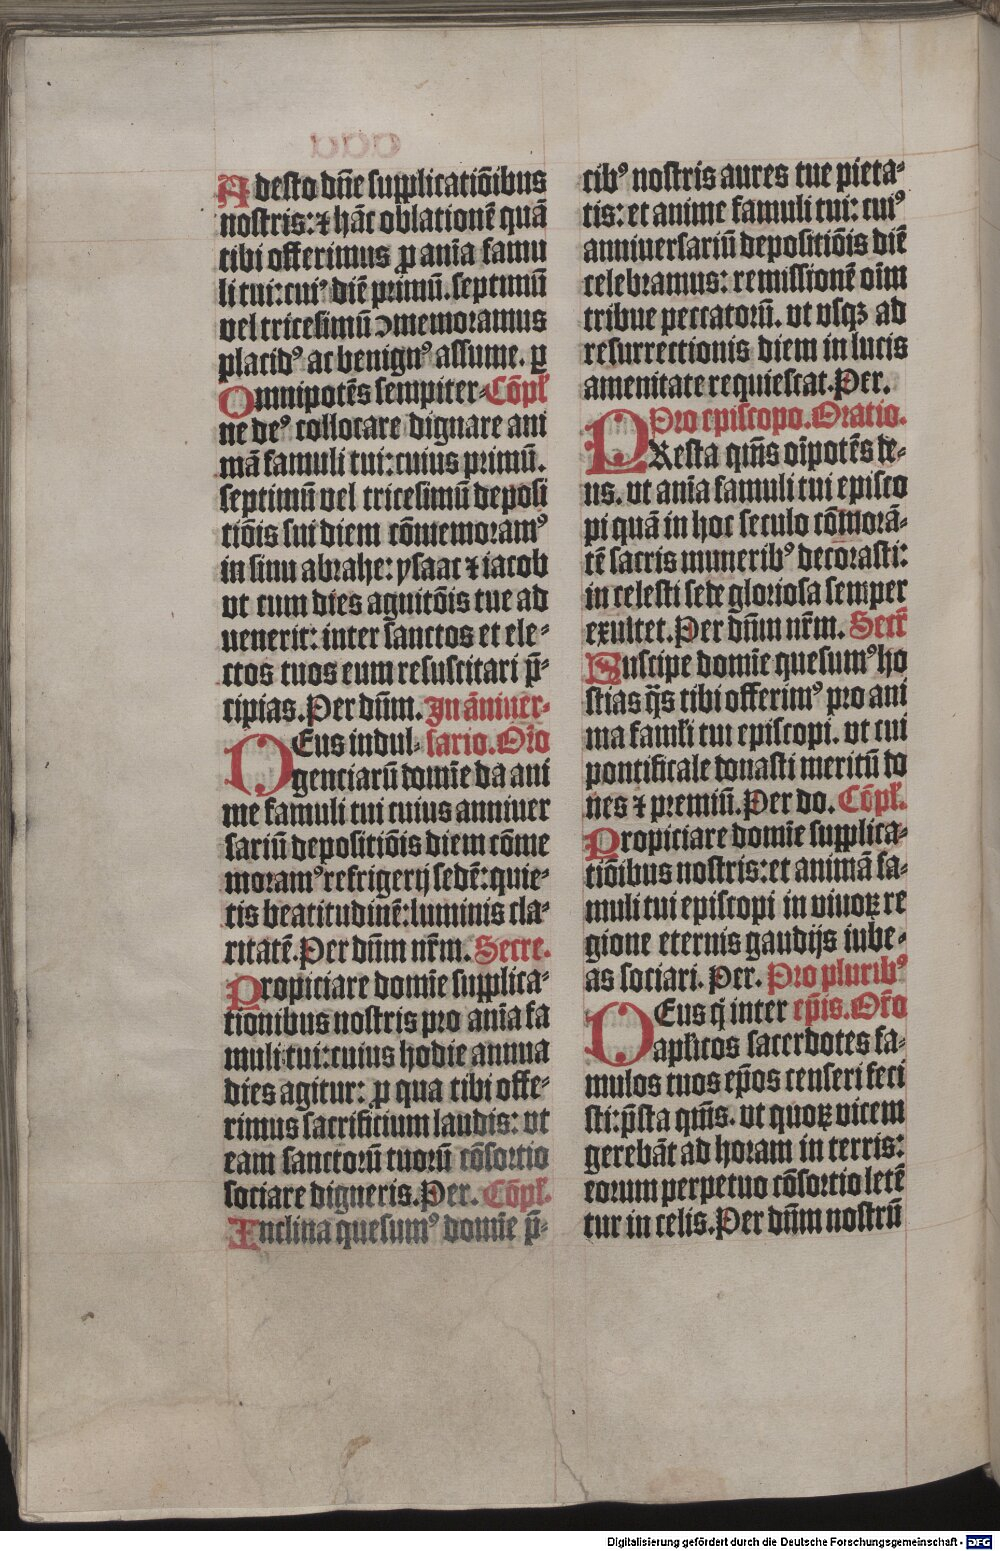 Adesto dn̄e supplicatiōibus
nostris: ⁊ hāc oblationē quā
tibi offerimus ꝓ anīa famu
li tui: cuiꝰ diē primū. septimū
vel tricesimū ↄmemoramus
placidꝰ ac benignꝰ assume. ꝑ
Omnipotēs sempiter- Cōpl̄
ne deꝰ collocare dignare ani
mā famuli tui: cuius primū.
septimū vel tricesimū deposi
tiōis sui diem cōmemoramꝰ
in sinu abrahe: ysaac ⁊ iacob
vt cum dies agnitōis tue ad
uenerit: inter sanctos et ele-
ctos tuos eum resuscitari p̄-
cipias. Per dn̄m. In āniuer-
DEus indul- sario. Or̄o
genciarū domīe da ani
me famuli tui cuius anniuer
sariū depositiōis diem cōme
moramꝰ refrigerij sedē: quie-
tis beatitudinē: luminis cla-
ritatē. Per dn̄m nr̄m. Secre.
Propiciare domīe supplica-
tionibus nostris pro anīa fa
muli tui: cuius hodie annua
dies agitur: ꝓ qua tibi offe-
rimus sacrificium laudis: vt
eam sanctorū tuorū cōsortio
sociare digneris. Per. Cōpl̄.
Inclina quesumꝰ domīe p̄-
cibꝰ nostris aures tue pieta-
tis: et anime famuli tui: cuiꝰ
anniuersariū depositiōis diē
celebramus: remissionē oīm
tribue peccatorū. vt vsqꝫ ad
resurrectionis diem in lucis
amenitate requiescat. Per.
Pro episcopo. Oratio.
PResta qm̄s oīpotēs de-
us. vt anīa famuli tui episco
pi quā in hoc seculo cōmorā-
tē sacris muneribꝰ decorasti:
in celesti sede gloriosa semper
exultet. Per dn̄m nr̄m. Secr̄
Suscipe domīe quesumꝰ ho
stias q̄s tibi offerimꝰ pro ani
ma famĺi tui episcopi. vt cui
pontificale donasti meritū do
nes ⁊ premiū. Per do. Cōpl̄.
Propiciare domīe supplica-
tiōibus nostris: et animā fa-
muli tui episcopi in viuoꝝ re
gione eternis gaudijs iube-
as sociari. Per. Pro pluribꝰ
DEus q̄ inter ep̄is. Or̄o
apl̄icos sacerdotes fa-
mulos tuos ep̄os censeri feci
sti: p̄sta qm̄s. vt quoꝝ vicem
gerebāt ad horam in terris:
eorum perpetuo cōsortio letē
tur in celis. Per dn̄m nostrū
Digitalisierung gefördert durch die Deutsche Forschungsgemeinschaft - DFG